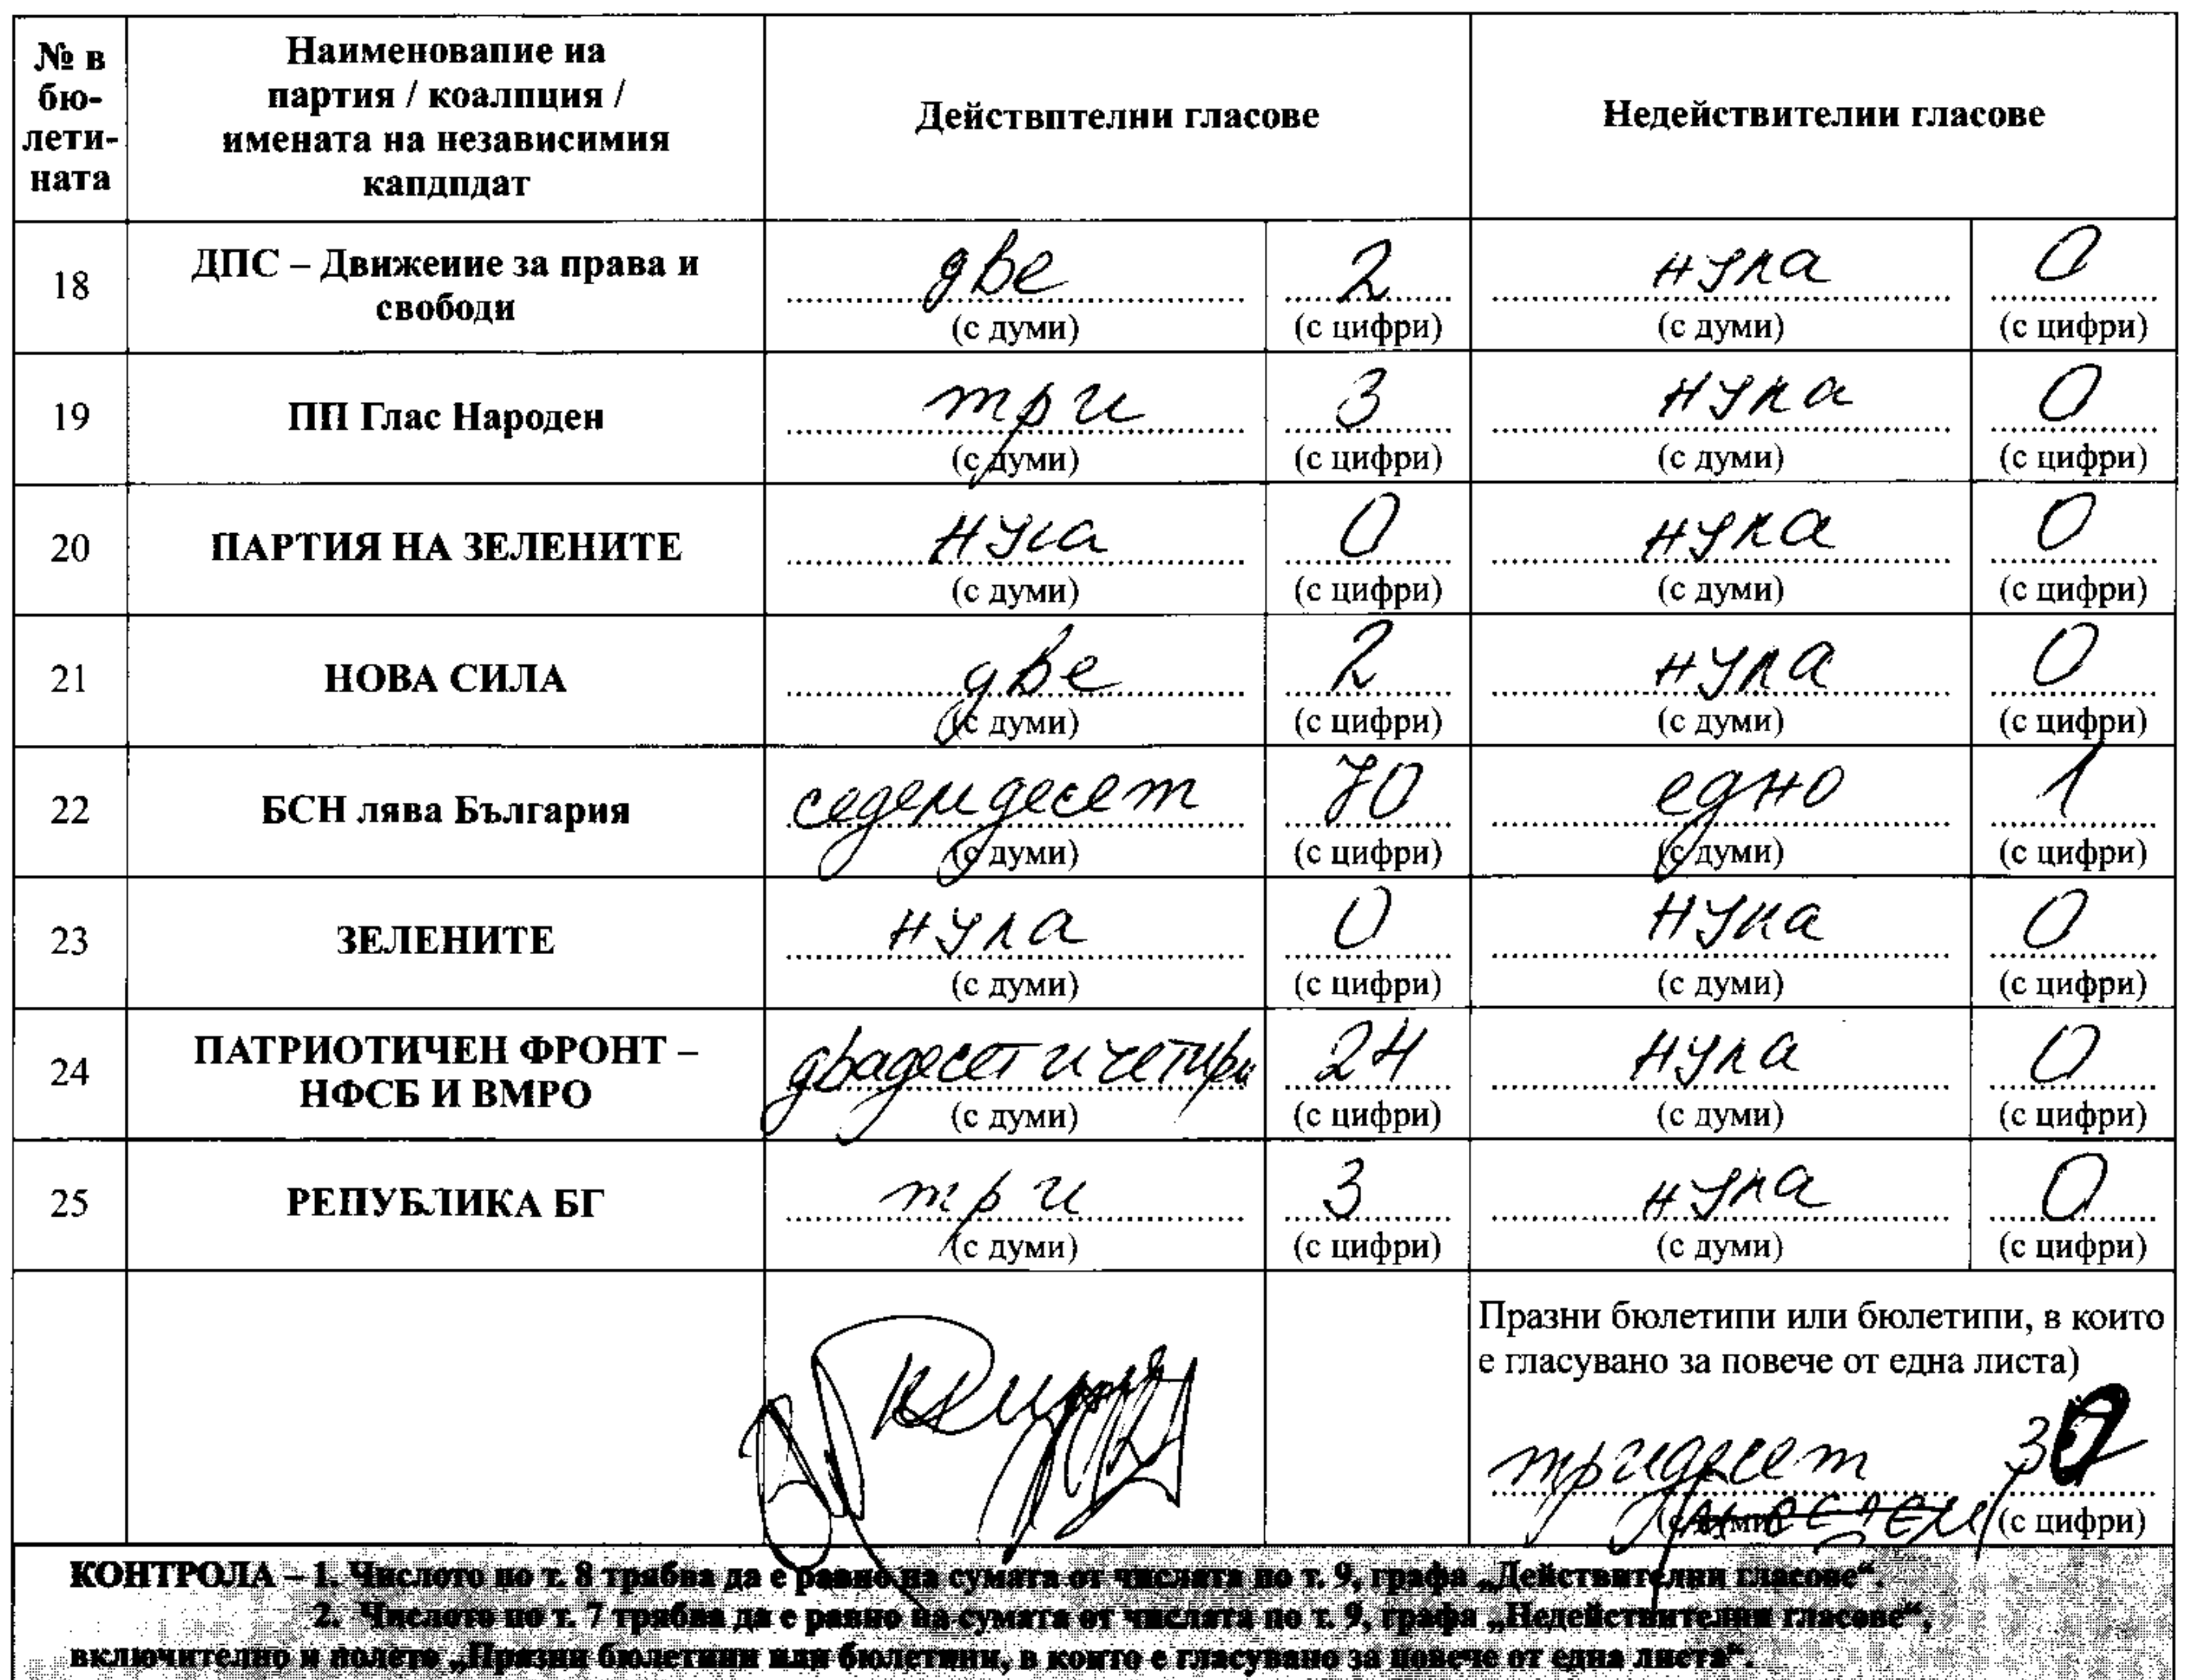 № в бю-лети-ната
Наименование на партия / коалиция / имената на независимия кандидат
Действителни гласове
Недействителни гласове
18 ДПС – Движение за права и свободи две (с думи) 2 (с цифри) нула (с думи) 0 (с цифри)
19 ПП Глас Народен три (с думи) 3 (с цифри) нула (с думи) 0 (с цифри)
20 ПАРТИЯ НА ЗЕЛЕНИТЕ нула (с думи) 0 (с цифри) нула (с думи) 0 (с цифри)
21 НОВА СИЛА две (с думи) 2 (с цифри) нула (с думи) 0 (с цифри)
22 БСН лява България седемдесет (с думи) 70 (с цифри) едно (с думи) 1 (с цифри)
23 ЗЕЛЕНИТЕ нула (с думи) 0 (с цифри) нула (с думи) 0 (с цифри)
24 ПАТРИОТИЧЕН ФРОНТ – НФСБ И ВМРО двадесет и четири (с думи) 24 (с цифри) нула (с думи) 0 (с цифри)
25 РЕПУБЛИКА БГ три (с думи) 3 (с цифри) нула (с думи) 0 (с цифри)
Празни бюлетини или бюлетини, в които
е гласувано за повече от една листа)
тридесет
(с цифри)
КОНТРОЛА – 1. Числото по т. 8 трябва да е равно на сумата от числата по т. 9, графа „Действителни гласове“.
2. Числото по т. 7 трябва да е равно на сумата от числата по т. 9, графа „Недействителни гласове“,
включително и полето „Празни бюлетини или бюлетини, в които е гласувано за повече от една листа“.